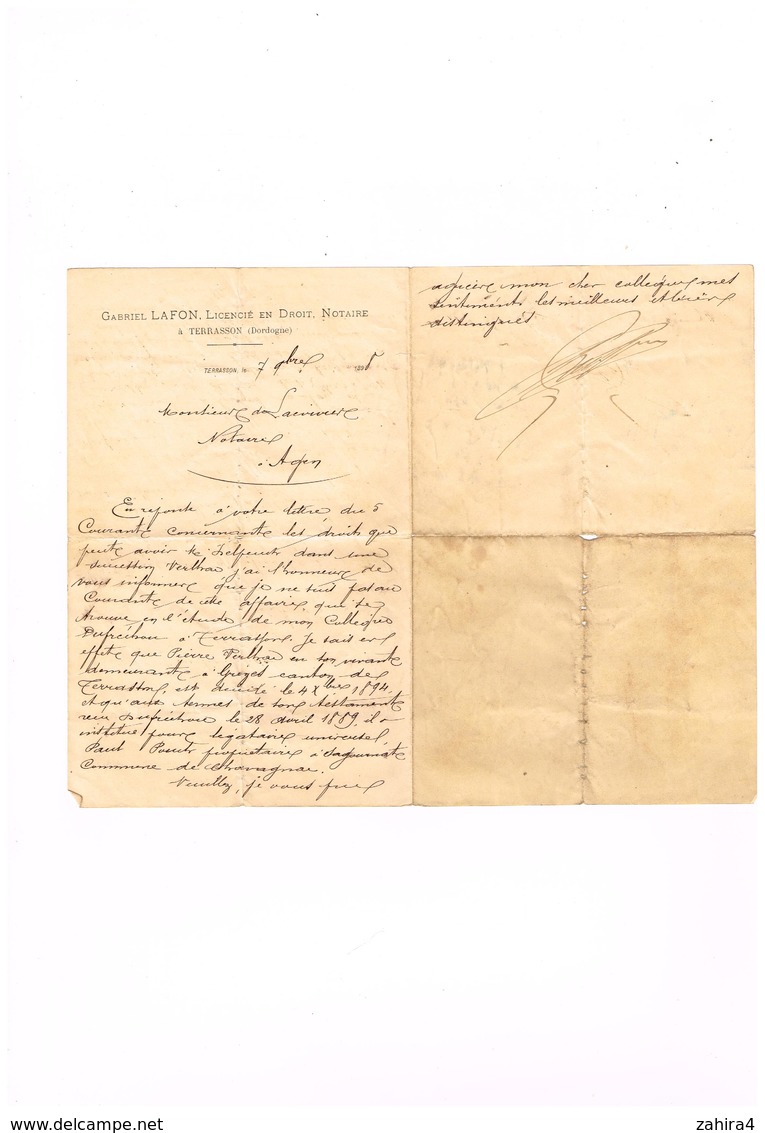 GABRIEL LAFON, LICENCIÉ EN DROIT, NOTAIRE
à TERRASSON (Dordogne)
TERRASSON, le 7 9bre 189
Monsieur de
Notaire
à Agen
En réponse à votre lettre du 5
Courant concernant les droits que
peut avoir dans une
succession j'ai l'honneur de
vous informer que je ne suis pas au
Courant de cette affaire qui se
trouve en l'étude de mon Collègue
à Terrasson. Je sais en
effet que Pierre en son vivant
demeurant à Grèzes canton de
Terrasson, est décédé le 4 Xbre 1894,
et qu'aux termes de son testament
reçu le 28 avril 1889 il a
institué pour légataire universel
Paul propriétaire à
Commune de Chavagnac.
Veuillez, je vous prie
agréer mon cher collègue mes
sentiments les meilleurs et bien
distingués
www.delcampe.net
zahira4